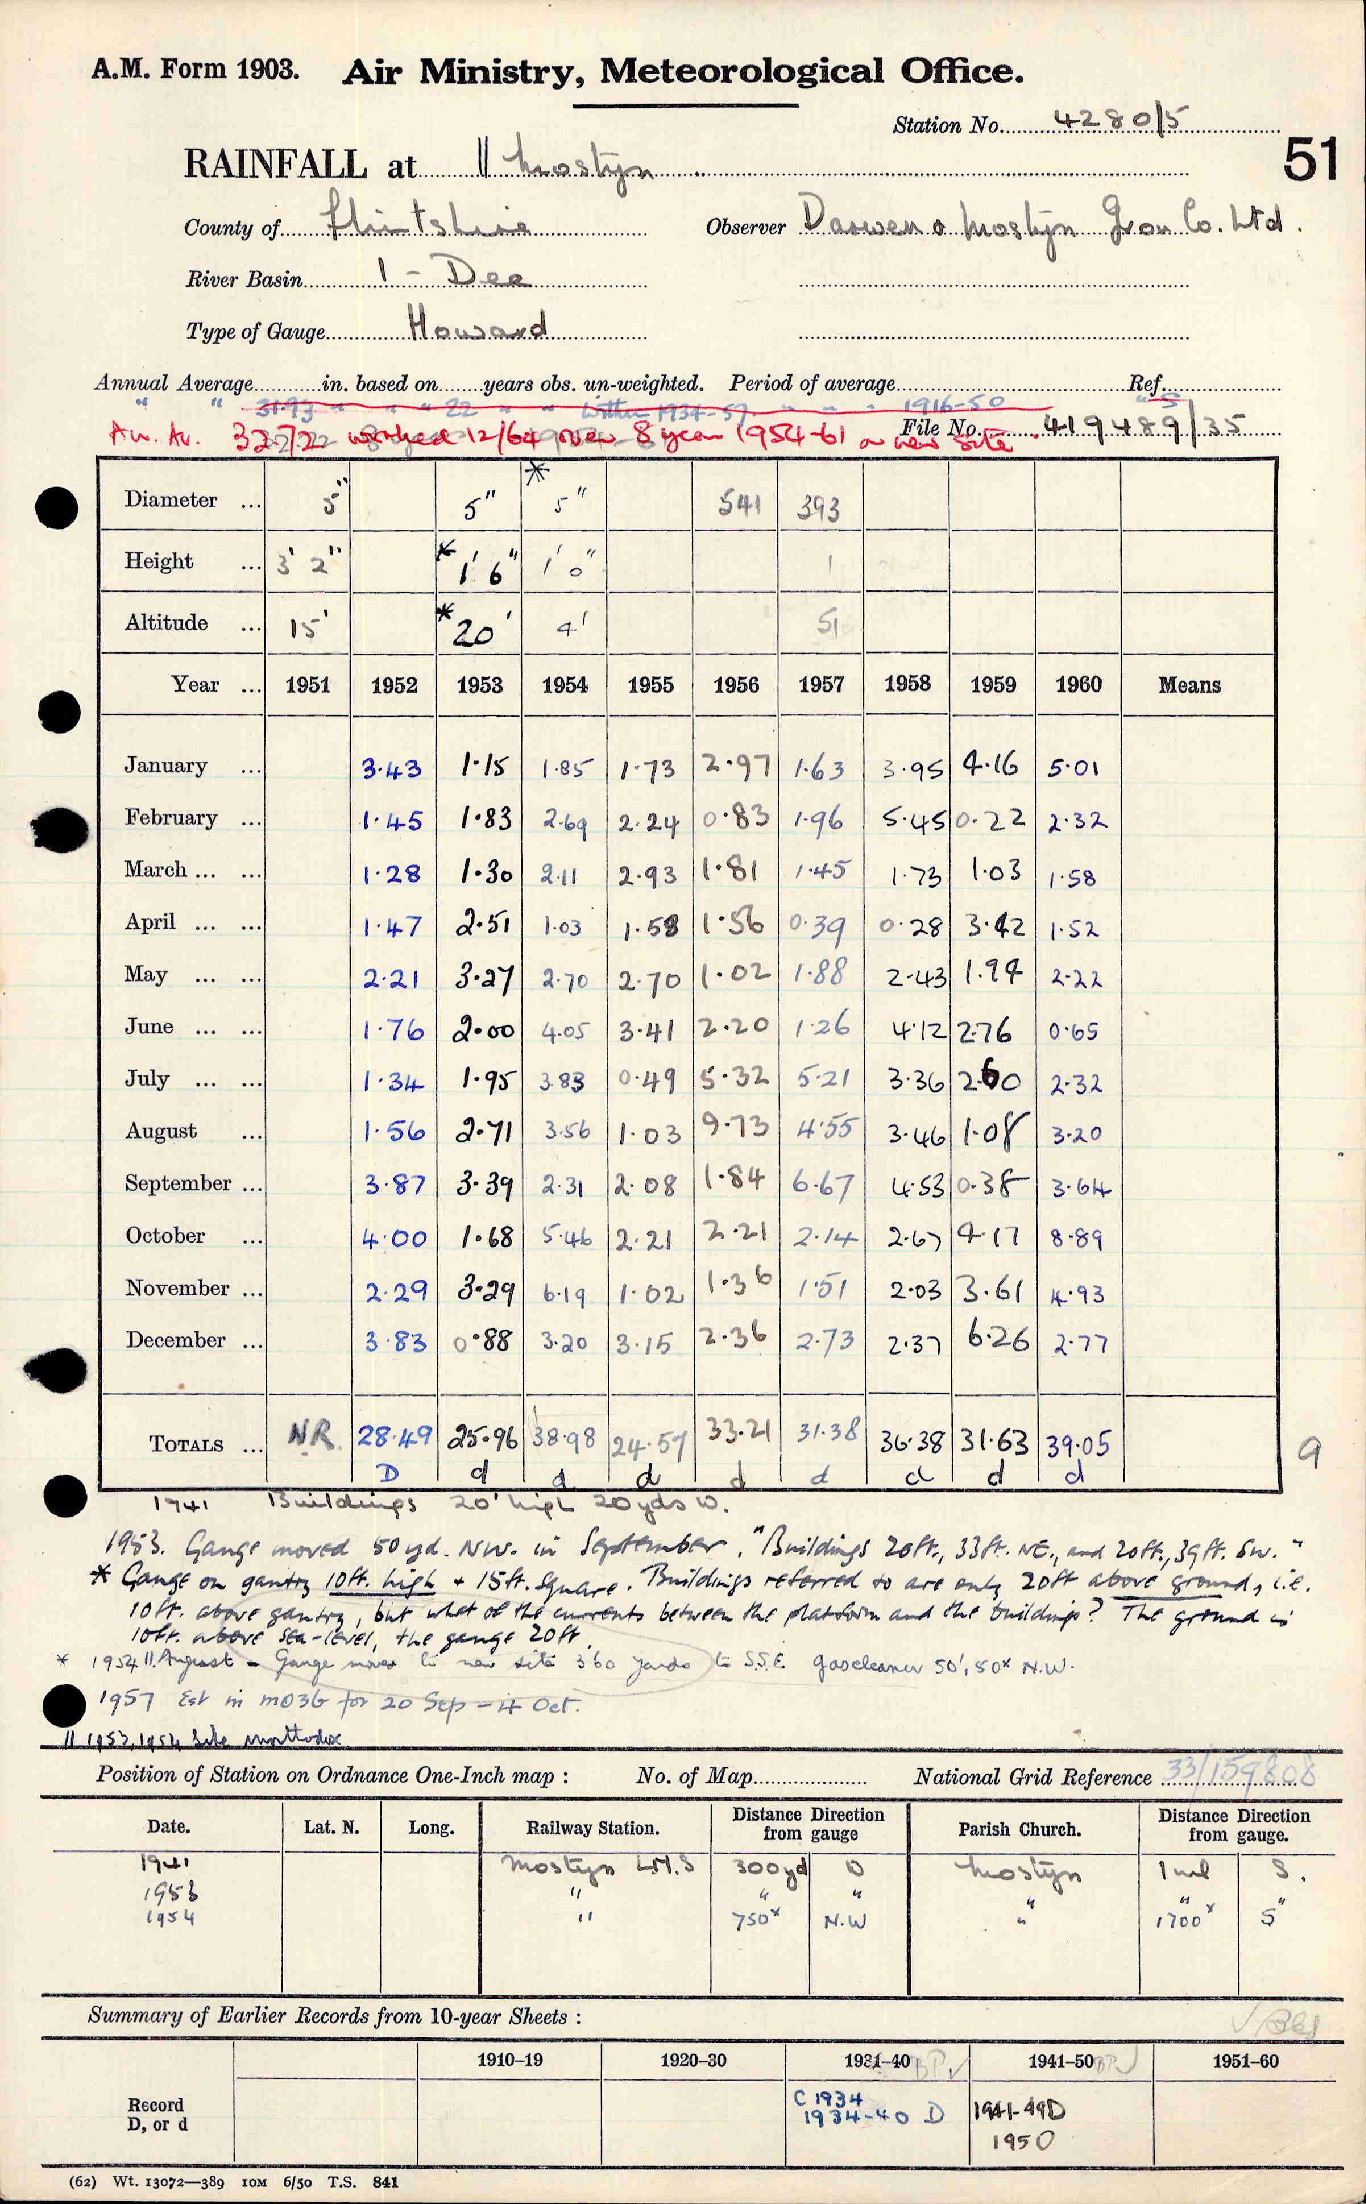 A.M. Form 1903. Air Ministry, Meteorological Office.
Station No. 4280/5
51
RAINFALL at || Mostyn
County of Flintshire Observer Darwen & Mostyn Iron Co. Ltd.
River Basin 1 - Dee
Type of Gauge Howard
Annual Average in. based on years obs. un-weighted. Period of average Ref.
" " 31.93 " " " 22 " " within 1934-57 " " " 1916-50 " 5
Av. Av. 32.72 worked 12/64 over 8 years 1954-61 on new site. File No. 419489/35
Diameter ... 5" 5" * 5" 541 393
Height ... 3' 2" * 1' 6" 1' 0" 1
Altitude ... 15' * 20' 4' 51
Year ... 1951 1952 1953 1954 1955 1956 1957 1958 1959 1960 Means
January ... 3.43 1.15 1.85 1.73 2.97 1.63 3.95 4.16 5.01
February ... 1.45 1.83 2.69 2.24 0.83 1.96 5.45 0.22 2.32
March ... ... 1.28 1.30 2.11 2.93 1.81 1.45 1.73 1.03 1.58
April ... ... 1.47 2.51 1.03 1.58 1.56 0.39 0.28 3.42 1.52
May ... ... 2.21 3.27 2.70 2.70 1.02 1.88 2.43 1.94 2.22
June ... ... 1.76 2.00 4.05 3.41 2.20 1.26 4.12 2.76 0.65
July ... ... 1.34 1.95 3.83 0.49 5.32 5.21 3.36 2.60 2.32
August ... 1.56 2.71 3.56 1.03 9.73 4.55 3.46 1.08 3.20
September ... 3.87 3.39 2.31 2.08 1.84 6.67 4.53 0.38 3.64
October ... 4.00 1.68 5.46 2.21 2.21 2.14 2.67 4.17 8.89
November ... 2.29 3.29 6.19 1.02 1.36 1.51 2.03 3.61 4.93
December ... 3.83 0.88 3.20 3.15 2.36 2.73 2.37 6.26 2.77
TOTALS ... N.R. 28.49 25.96 38.98 24.57 33.21 31.38 36.38 31.63 39.05
D d d d d d d d d
1941 Buildings 20' high 20yds W.
1953. Gauge moved 50yd. NW. in September. "Buildings 20ft., 33ft. NE., and 20ft., 39ft. SW."
* Gauge on gantry 10ft. high + 15ft. square. Buildings referred to are only 20ft above ground, i.e.
10ft. above gantry, but what of the currents between the platform and the buildings? The ground is
10ft. above sea-level, the gauge 20ft.
* 1954 11 August - Gauge moved to new site 360 yards to S.S.E. gascleaner 50', 50x N.W.
1957 Est in MO3b for 20 Sep - 4 Oct.
|| 1953, 1954 Site
Position of Station on Ordnance One-Inch map : No. of Map National Grid Reference 33/159808
Date. Lat. N. Long. Railway Station. Distance Direction from gauge Parish Church. Distance Direction from gauge.
1941 Mostyn L.M.S 300yd W Mostyn 1 ml S.
1953 " " " " " "
1954 " 750x N.W " 1700x S
Summary of Earlier Records from 10-year Sheets :
1910–19 1920–30 1931–40 1941–50 1951–60
Record
D, or d
C 1934
1934-40 D
1941-49D
1950
(62) Wt. 13072—389 10M 6/50 T.S. 841